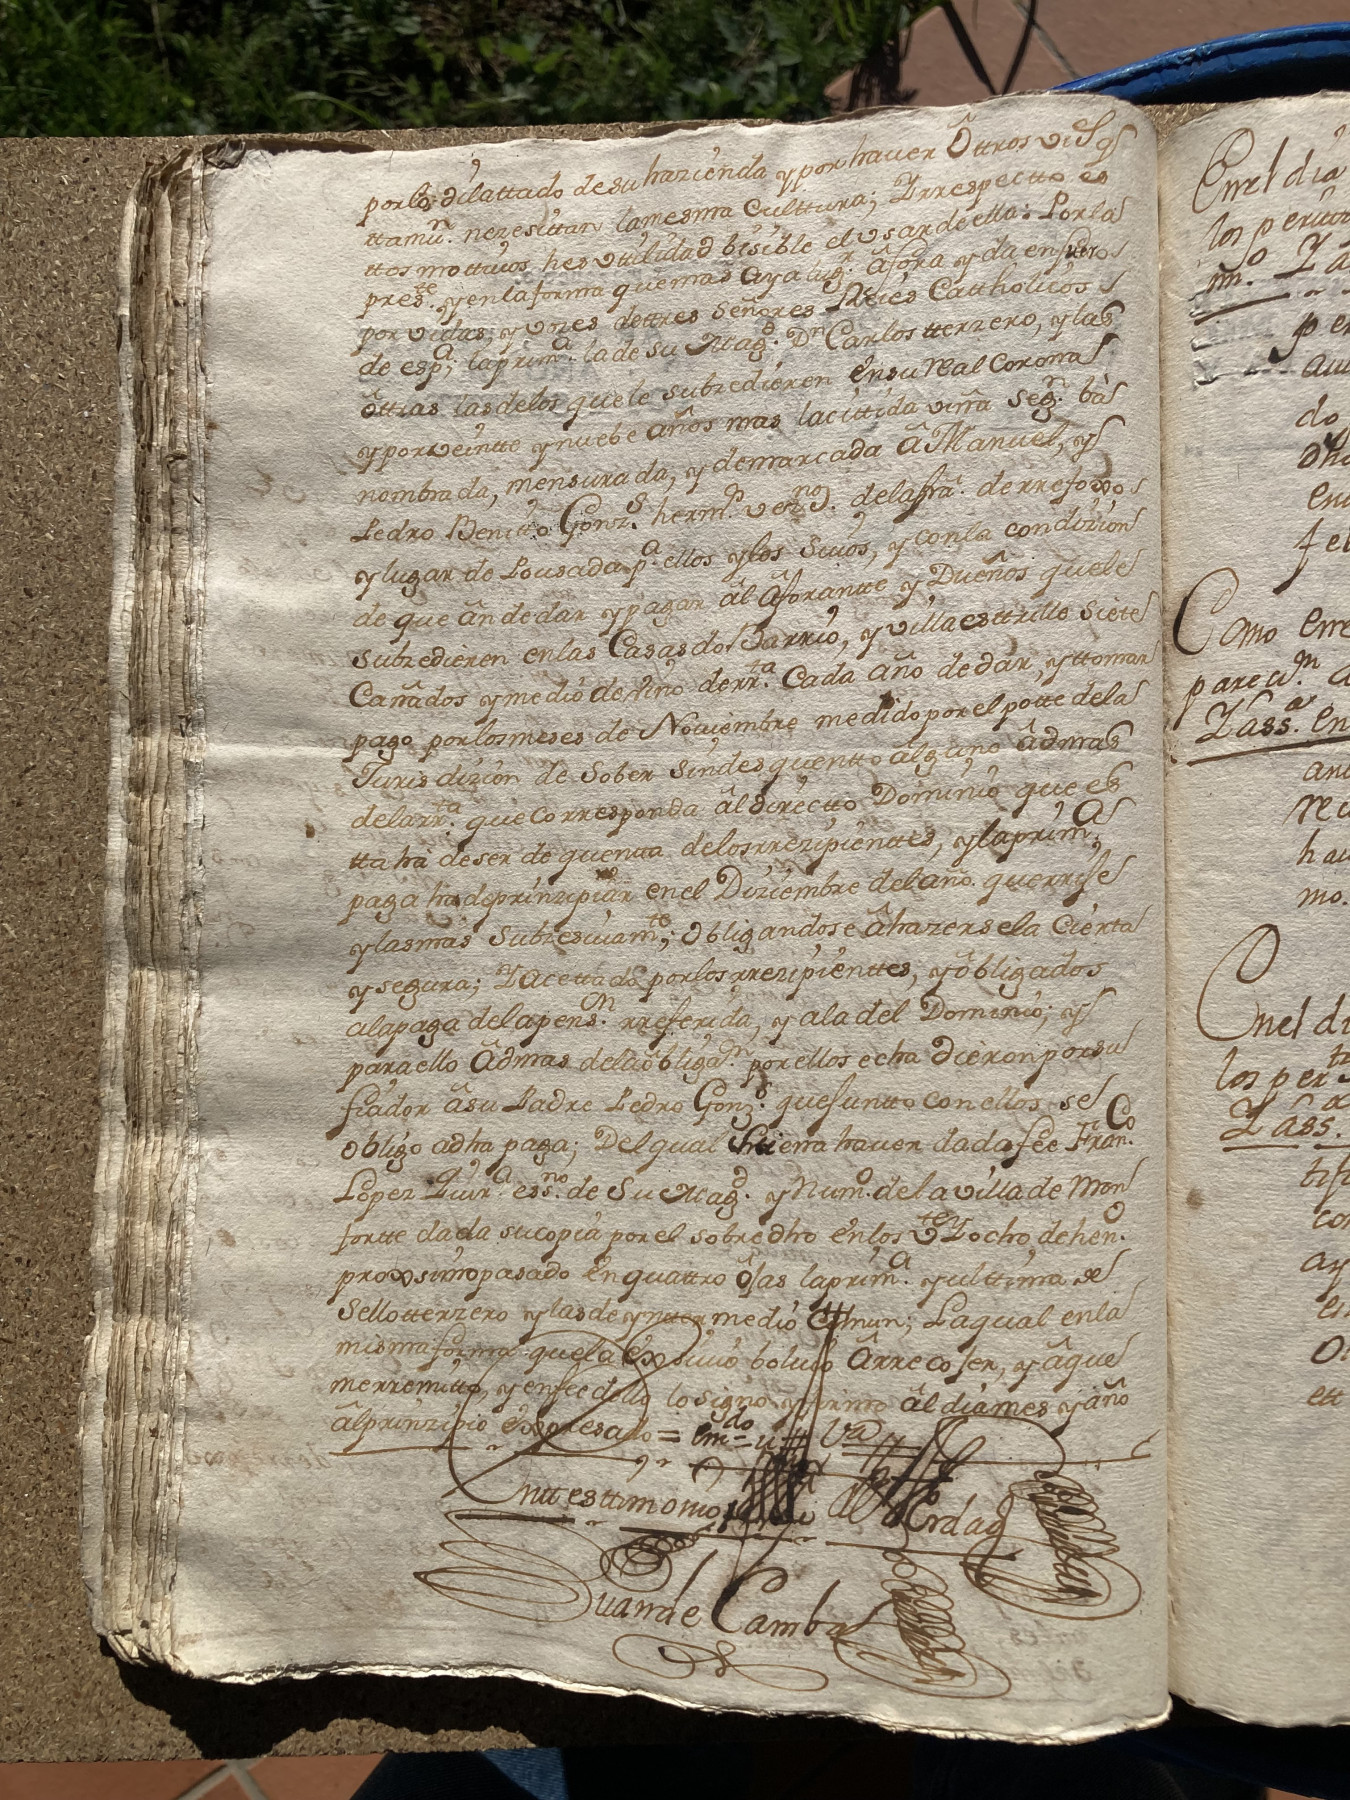 por lo dilattado de su hazienda y por haver ôttros vie.s q.e
ttamv.n nezesittan la mesma culttura; Irrespectto es
ttos mottivos hes vttilidad bisible el vsar de ella: Por la
pres.te y en la forma que mas aya lug.r âfora y da en fuero
por vidas, y vozes de ttres señores Reies Cattholicos
de esp.a; la prim.a la de su Mag.d D.n Carlos tterzero, y las
ôttras las de los que le subzedieren en su real Corona
y por veintte y nuebe años mas la cittada viña seg.n bà
nombrada, mensurada, y demarcada â Manuel, y
Pedro Benitto Gonz.s herm.s vez.nos de la fra. de rrefoxo
y lugar de Lousada p.a ellos y los suios, y con la condizion
de que ân de dar y pagar âl âforantte y Dueños que le
subzedieren en las Casas do Barrio, y villaesttrille siete
Cañados y medio de vino de rr.ta Cada año de dar, y ttomar
pago por los meses de Noviembre medido por el potte de la
Jurisdizion de Sober sin desquentto alguno âdmas
de la rr.ta que corresponda âl directto Dominio que es
tta ha de ser de quentta de los rrezipienttes, y la prim.a
paga ha de prinzipiar en el Diziembre del año que rrije
y las mas subzesivam.te; obligandose â hazersela Cierta
y segura; Y acettado por los rrezipienttes, y ôbligados
a la paga de la pens.n rreferida, y a la del Dominio; y
para ello âdmas de la ôbliga.n por ellos echa dieron por su
fiador â su Padre Pedro Gonz.s que juntto con ellos se
obligo a dha paga; Del qual hiciera haver dado fee Fran.co
Lopez Quir.a ess.no de Su Mag.d y Num.o de la villa de Mon
fortte dada su copia por el sobredho en los vte Y ocho de hen.o
proxsimo pasado en quattro ôjas la prim.a y ulttima de
Sello tterzero y las de ynttermedio comun; La qual en la
misma forma que la exsivio bolvio â rrecojer, y â que
me rremitto, y en fee de ello lo signo y firmo âl dia mes y año
âl prinzipio expresado = em.do = u = Va
En ttesttimonio de verdad
Juan de Camba
En el dia
los perito
m.o
per
do
dho
en
Como erre
parez.n
Tass.a en
and
ha
mo.
En el di
los per.to
Tass.
tifi
con
ay
en
ett